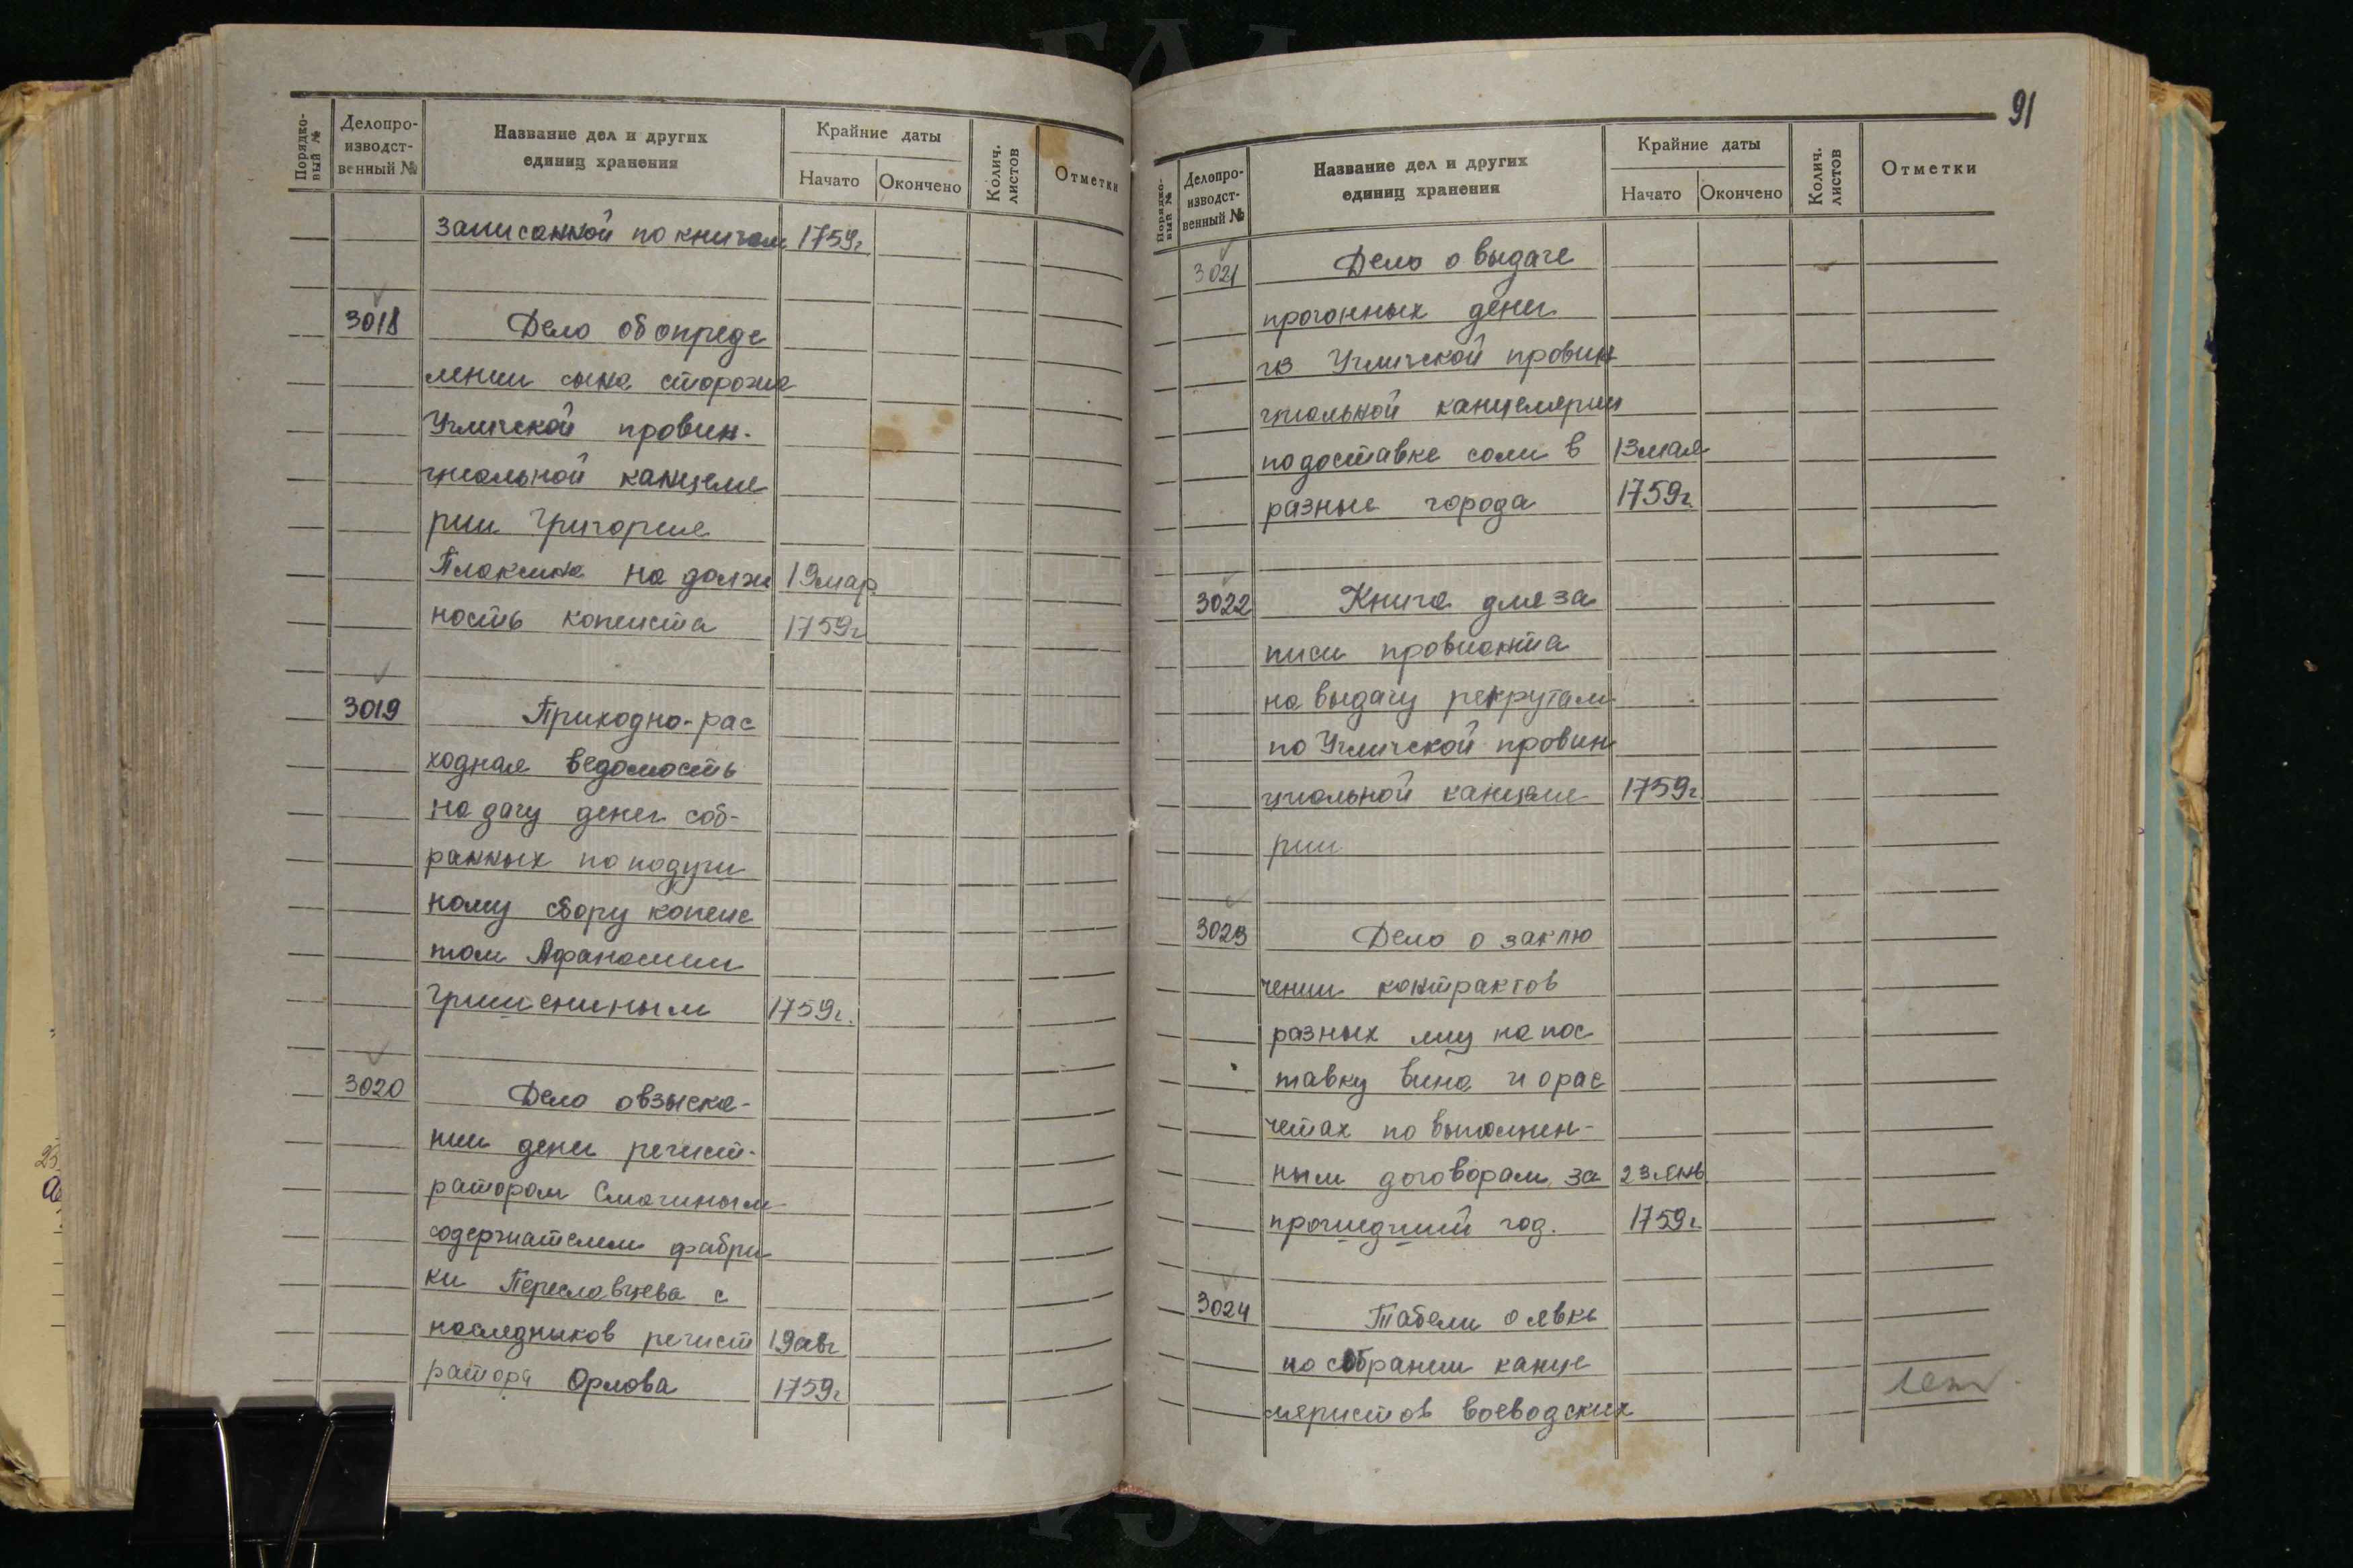 Порядко-
вый №
Делопро-
изводст-
венный №
Название дел и других
единиц хранения
Крайние даты
Начато
Окончено
Колич.
листов
Отметки
записанной по книгам 1759г
3018 Дело об опреде
лении сына сторожа
Угличской провин-
циальной канцеля
рии Григория
Плаксина на долж 19мар
ность копеиста 1759г
3019 Приходно-рас
ходная ведомость
на дачу денег соб-
ранных по подуш
ному сбору копеис
том Афанасием
Гришениным 1759г.
3020 Дело о взыска-
нии денег регист-
ратором Смагиным
содержателем фабри
ки Переславцева с
наследников регист 19авг
ратора Орлова 1759г
91
Порядко-
вый №
Делопро-
изводст-
венный №
Название дел и других
единиц хранения
Крайние даты
Начато
Окончено
Колич.
листов
Отметки
3021 Дело о выдаче
прогонных денег
из Угличской провин
циальной канцелярии
по доставке соли в 13мая
разные города 1759г.
3022 Книга для за
писи провианта
на выдачу рекрутам
по Угличской провин
циальной канцеля 1759г.
рии
3023 Дело о заклю
чении контрактов
разных лиц на пос
тавку вина и о рас
четах по выполнен-
ным договорам за 23 янв
прошедший год. 1759г
3024 Табели о явке
по собрании канце
ляристов воеводских